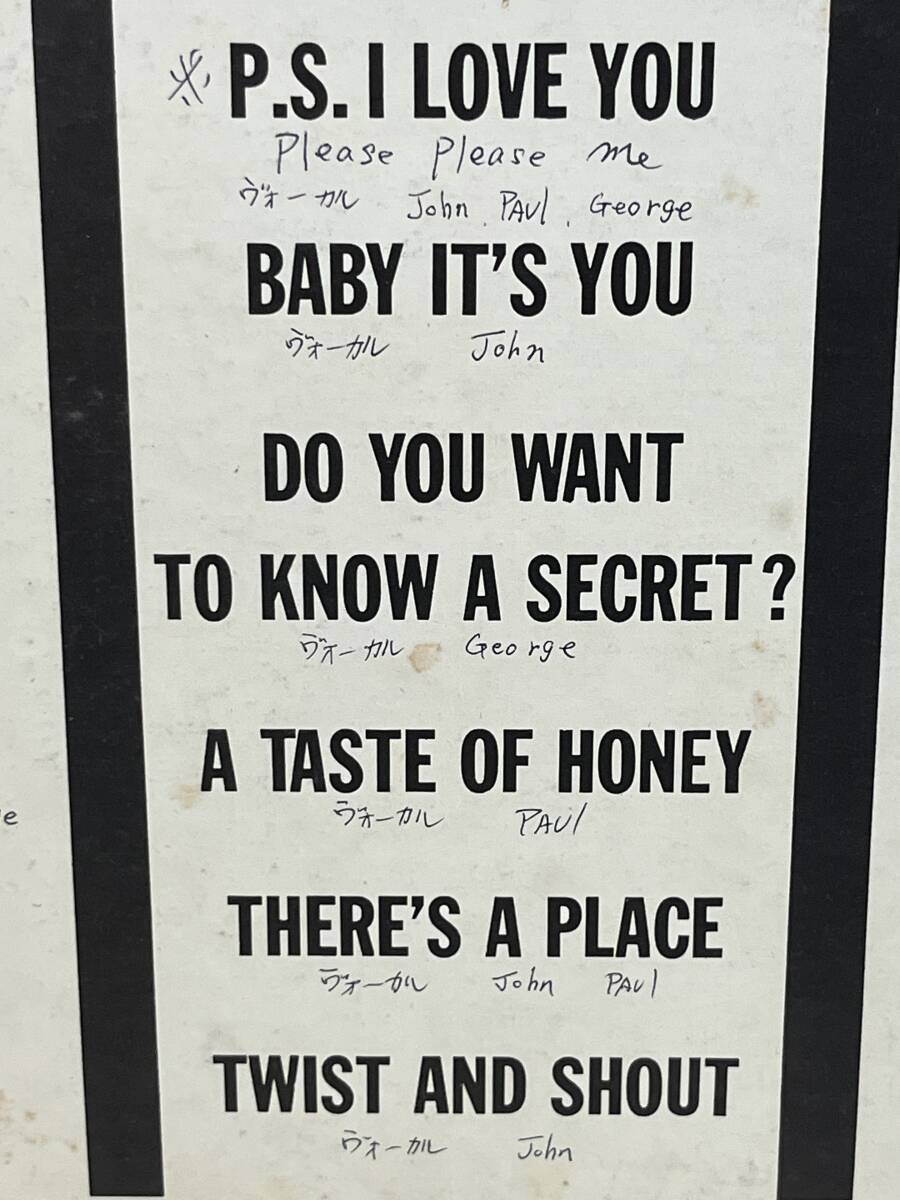 ※ P.S. I LOVE YOU
Please Please me
ヴォーカル John. PAUl. George
BABY IT'S YOU
ヴォーカル John
DO YOU WANT
TO KNOW A SECRET?
ヴォーカル George
A TASTE OF HONEY
ヴォーカル PAUl
e
THERE'S A PLACE
ヴォーカル John PAUl
TWIST AND SHOUT
ヴォーカル John